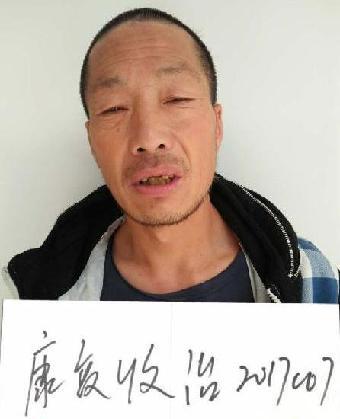 康复收治2017007